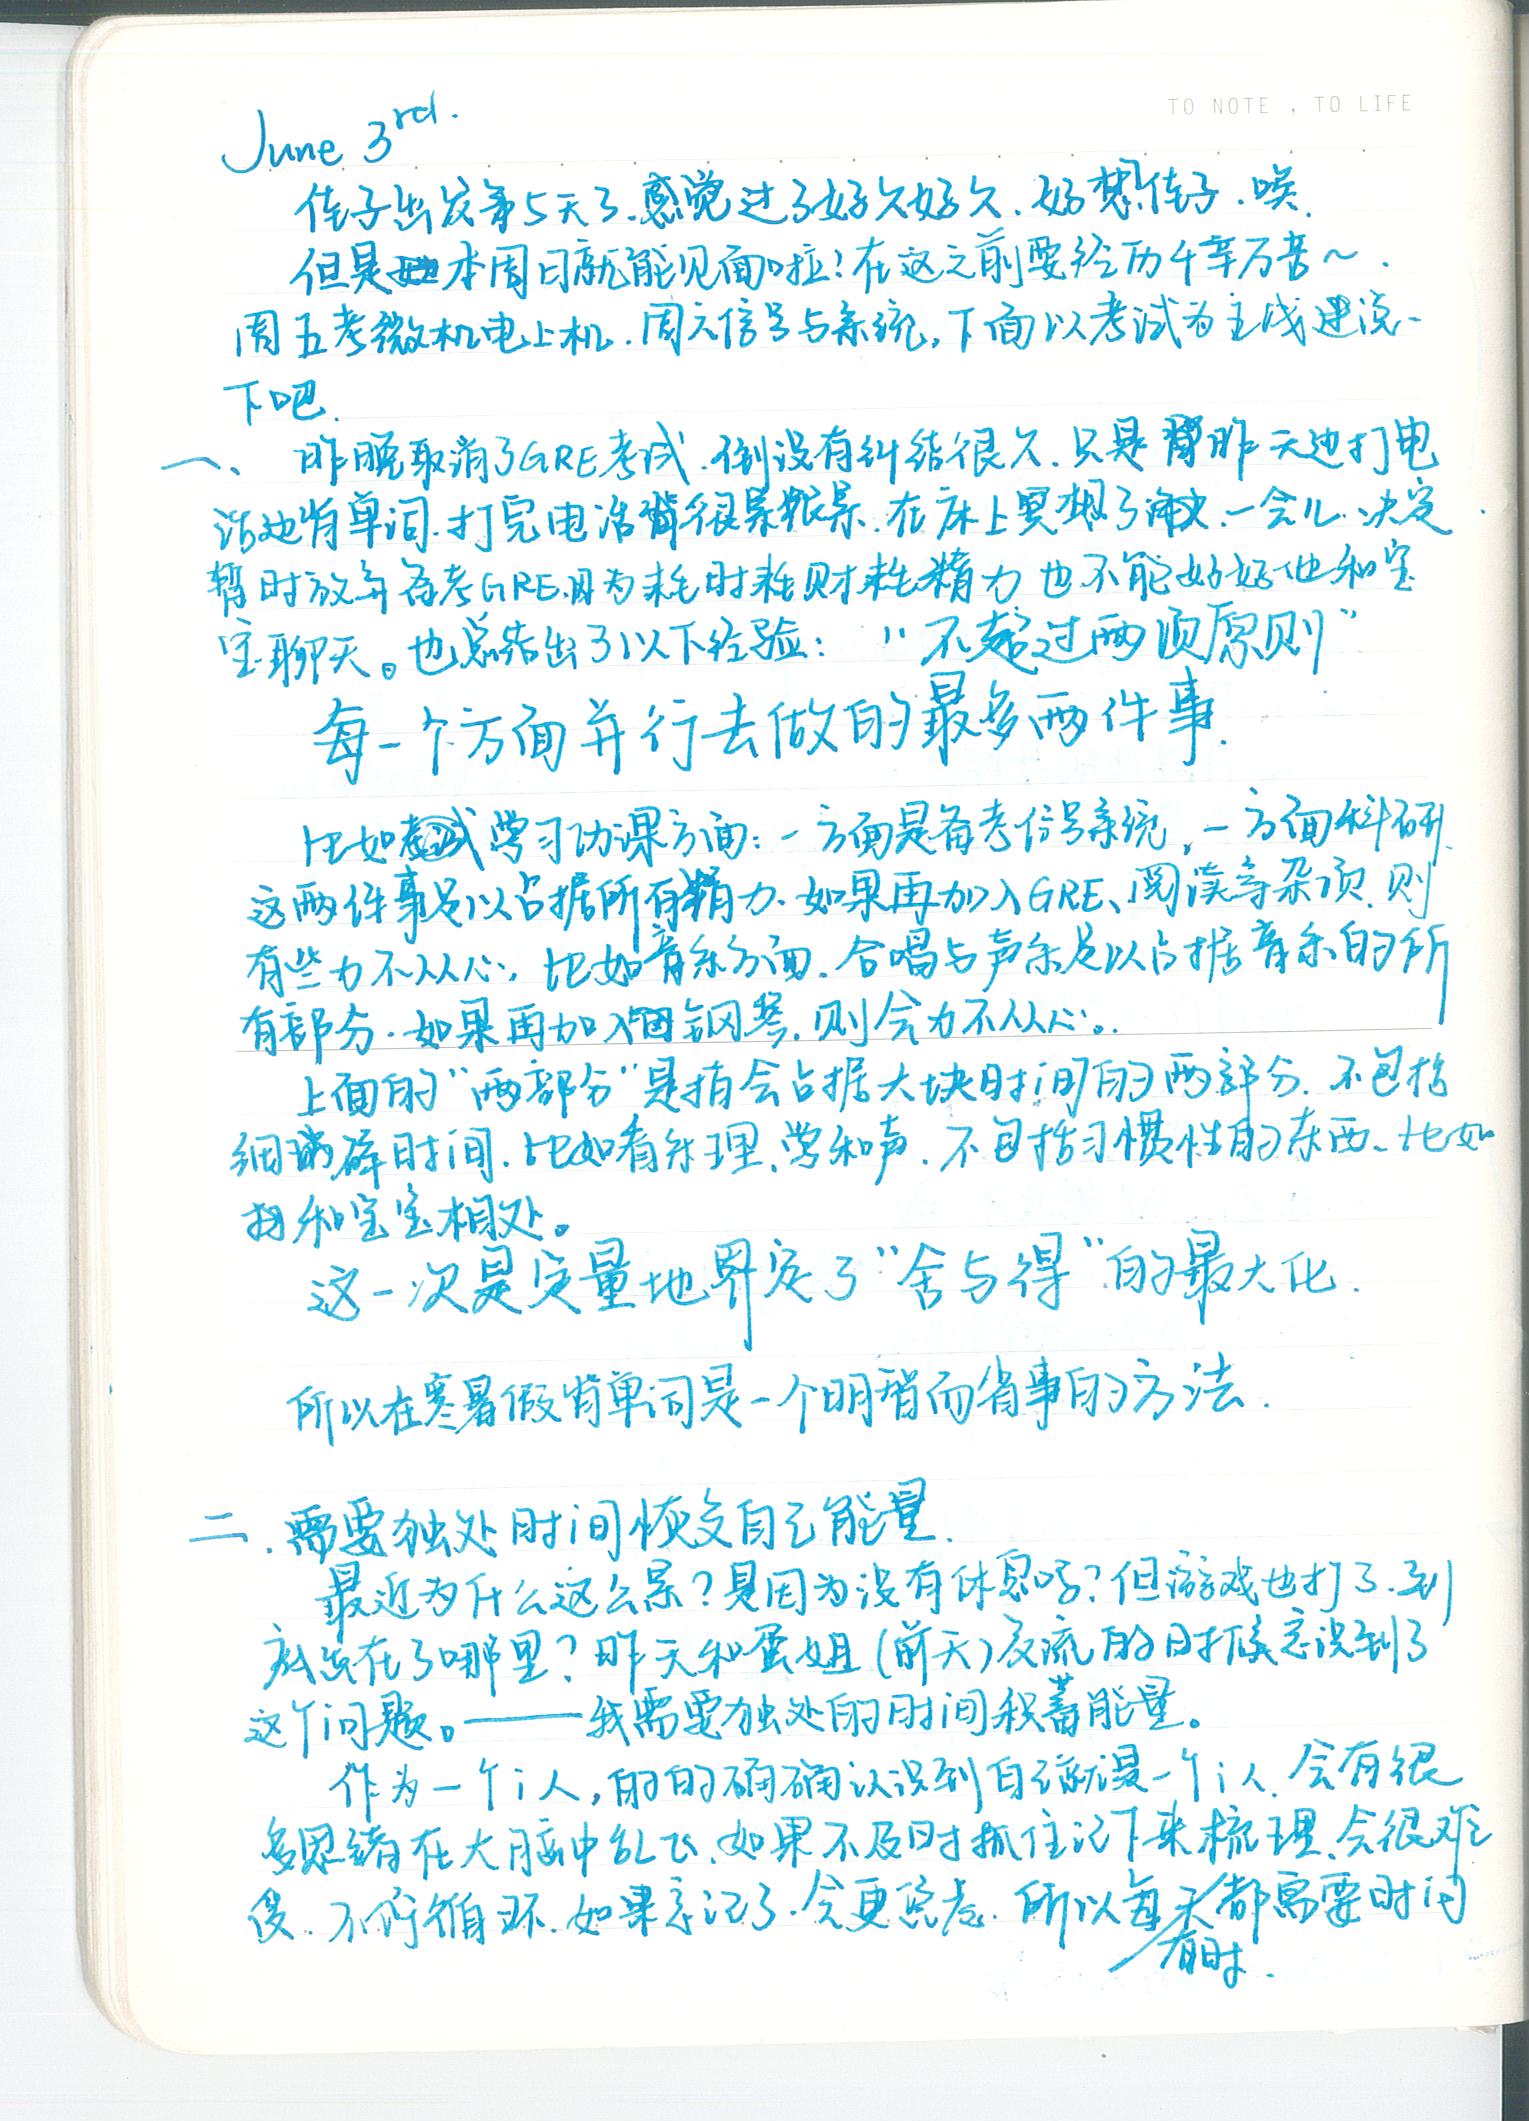 TO NOTE , TO LIFE
June 3rd.
佳子出发第5天了.感觉过了好久好久.好想佳子.唉.
但是本周日就能见面啦!在这之前要经历千辛万苦~.
周五考微机电上机.周六信号与系统,下面以考试为主线述说一
下吧.
一、昨晚取消了GRE考试.倒没有纠结很久.只是昨天边打电
话边背单词.打完电话背很累很累.在床上冥想了一会儿.决定
暂时放弃备考GRE.因为耗时耗财耗精力也不能好好地和宝
宝聊天。也总结出了以下经验: “不超过两项原则”
每一个方面并行去做的最多两件事.
比如学习功课方面:一方面是备考信号系统,一方面科研.
这两件事足以占据所有精力.如果再加入GRE、阅读等杂项.则
有些力不从心.比如音乐方面.合唱与声乐足以占据音乐的所
有部分.如果再加入钢琴.则会力不从心。
上面的“两部分”是指会占据大块时间的两部分.不包括
细碎时间.比如看乐理、学和声.不包括习惯性的东西、比如
和宝宝相处。
这一次是定量地界定了“舍与得”的最大化.
所以在寒暑假背单词是一个明智而省事的方法.
二.需要独处时间恢复自己能量.
最近为什么这么累?是因为没有休息吗?但游戏也打了.到
底点在了哪里?昨天和蛋姐(前天)交流的时候意识到了
这个问题。——我需要独处的时间积蓄能量。
作为一个i人,的的确确认识到自己就是一个i人.会有很
多思绪在大脑中乱飞.如果不及时抓住记下来梳理、会很难
受.不断循环.如果忘记了.会更焦虑.所以每天都需要时间
有时.